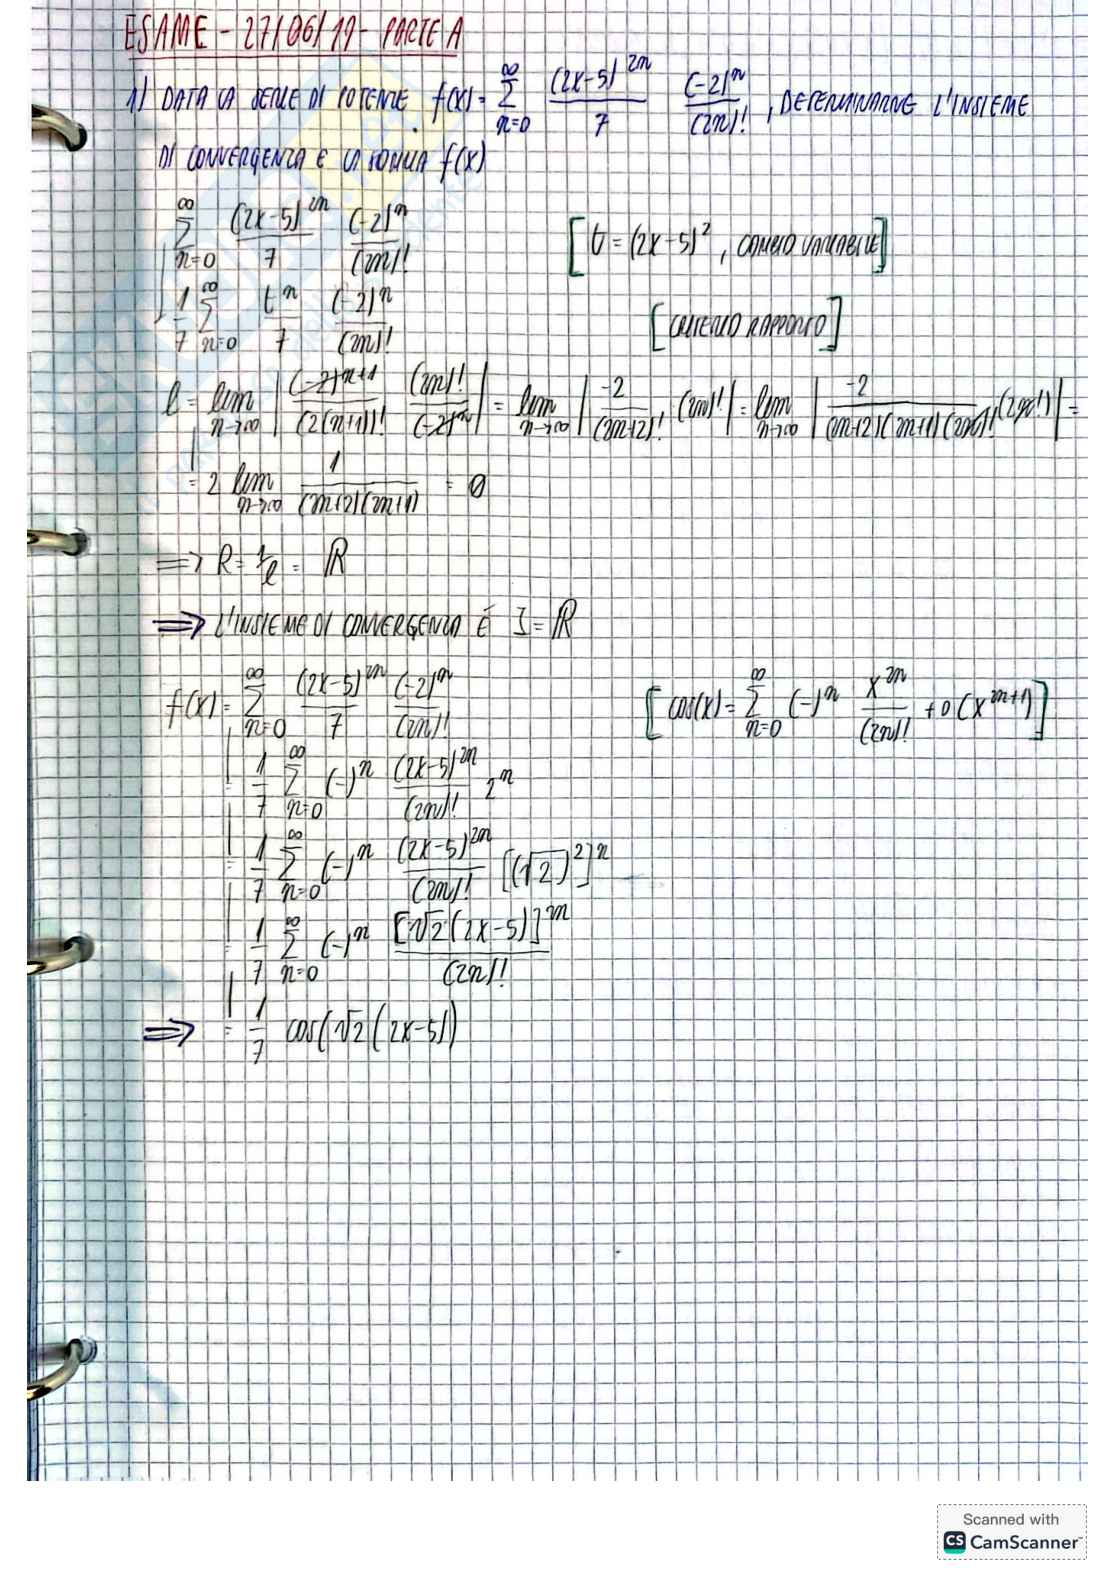 ESAME - 27/06/19 - PARTE A
1) DATA LA SERIE DI POTENZE f(x) = ∞Σn=0 (2x-5)^2n / 7 (-2)^n / (2n)! , DETERMINARNE L'INSIEME
DI CONVERGENZA E LA SOMMA f(x)
∞Σn=0 (2x-5)^2n / 7 (-2)^n / (2n)! [t = (2x-5)^2 , CAMBIO VARIABILE]
1/7 ∞Σn=0 t^n / 7 (-2)^n / (2n)! [CRITERIO RAPPORTO]
l = lim n→∞ | (-2)^n+1 / (2(n+1))! (2n)! / (-2)^n | = lim n→∞ | -2 / (2n+2)! · (2n)! | = lim n→∞ | -2 / (2n+2)(2n+1)(2n)! (2n!) | =
= 2 lim n→∞ 1 / (2n+2)(2n+1) = 0
⇒ R = 1/l = ℝ
⇒ L'INSIEME DI CONVERGENZA É I = ℝ
f(x) = ∞Σn=0 (2x-5)^2n / 7 (-2)^n / (2n)! [cos(x) = ∞Σn=0 (-)^n x^2n / (2n)! + o(x^2n+1)]
= 1/7 ∞Σn=0 (-)^n (2x-5)^2n / (2n)! 2^n
= 1/7 ∞Σn=0 (-)^n (2x-5)^2n / (2n)! [(√2)^2]^n
= 1/7 ∞Σn=0 (-)^n [√2(2x-5)]^2n / (2n)!
⇒ = 1/7 cos(√2(2x-5))
Scanned with
CS CamScanner